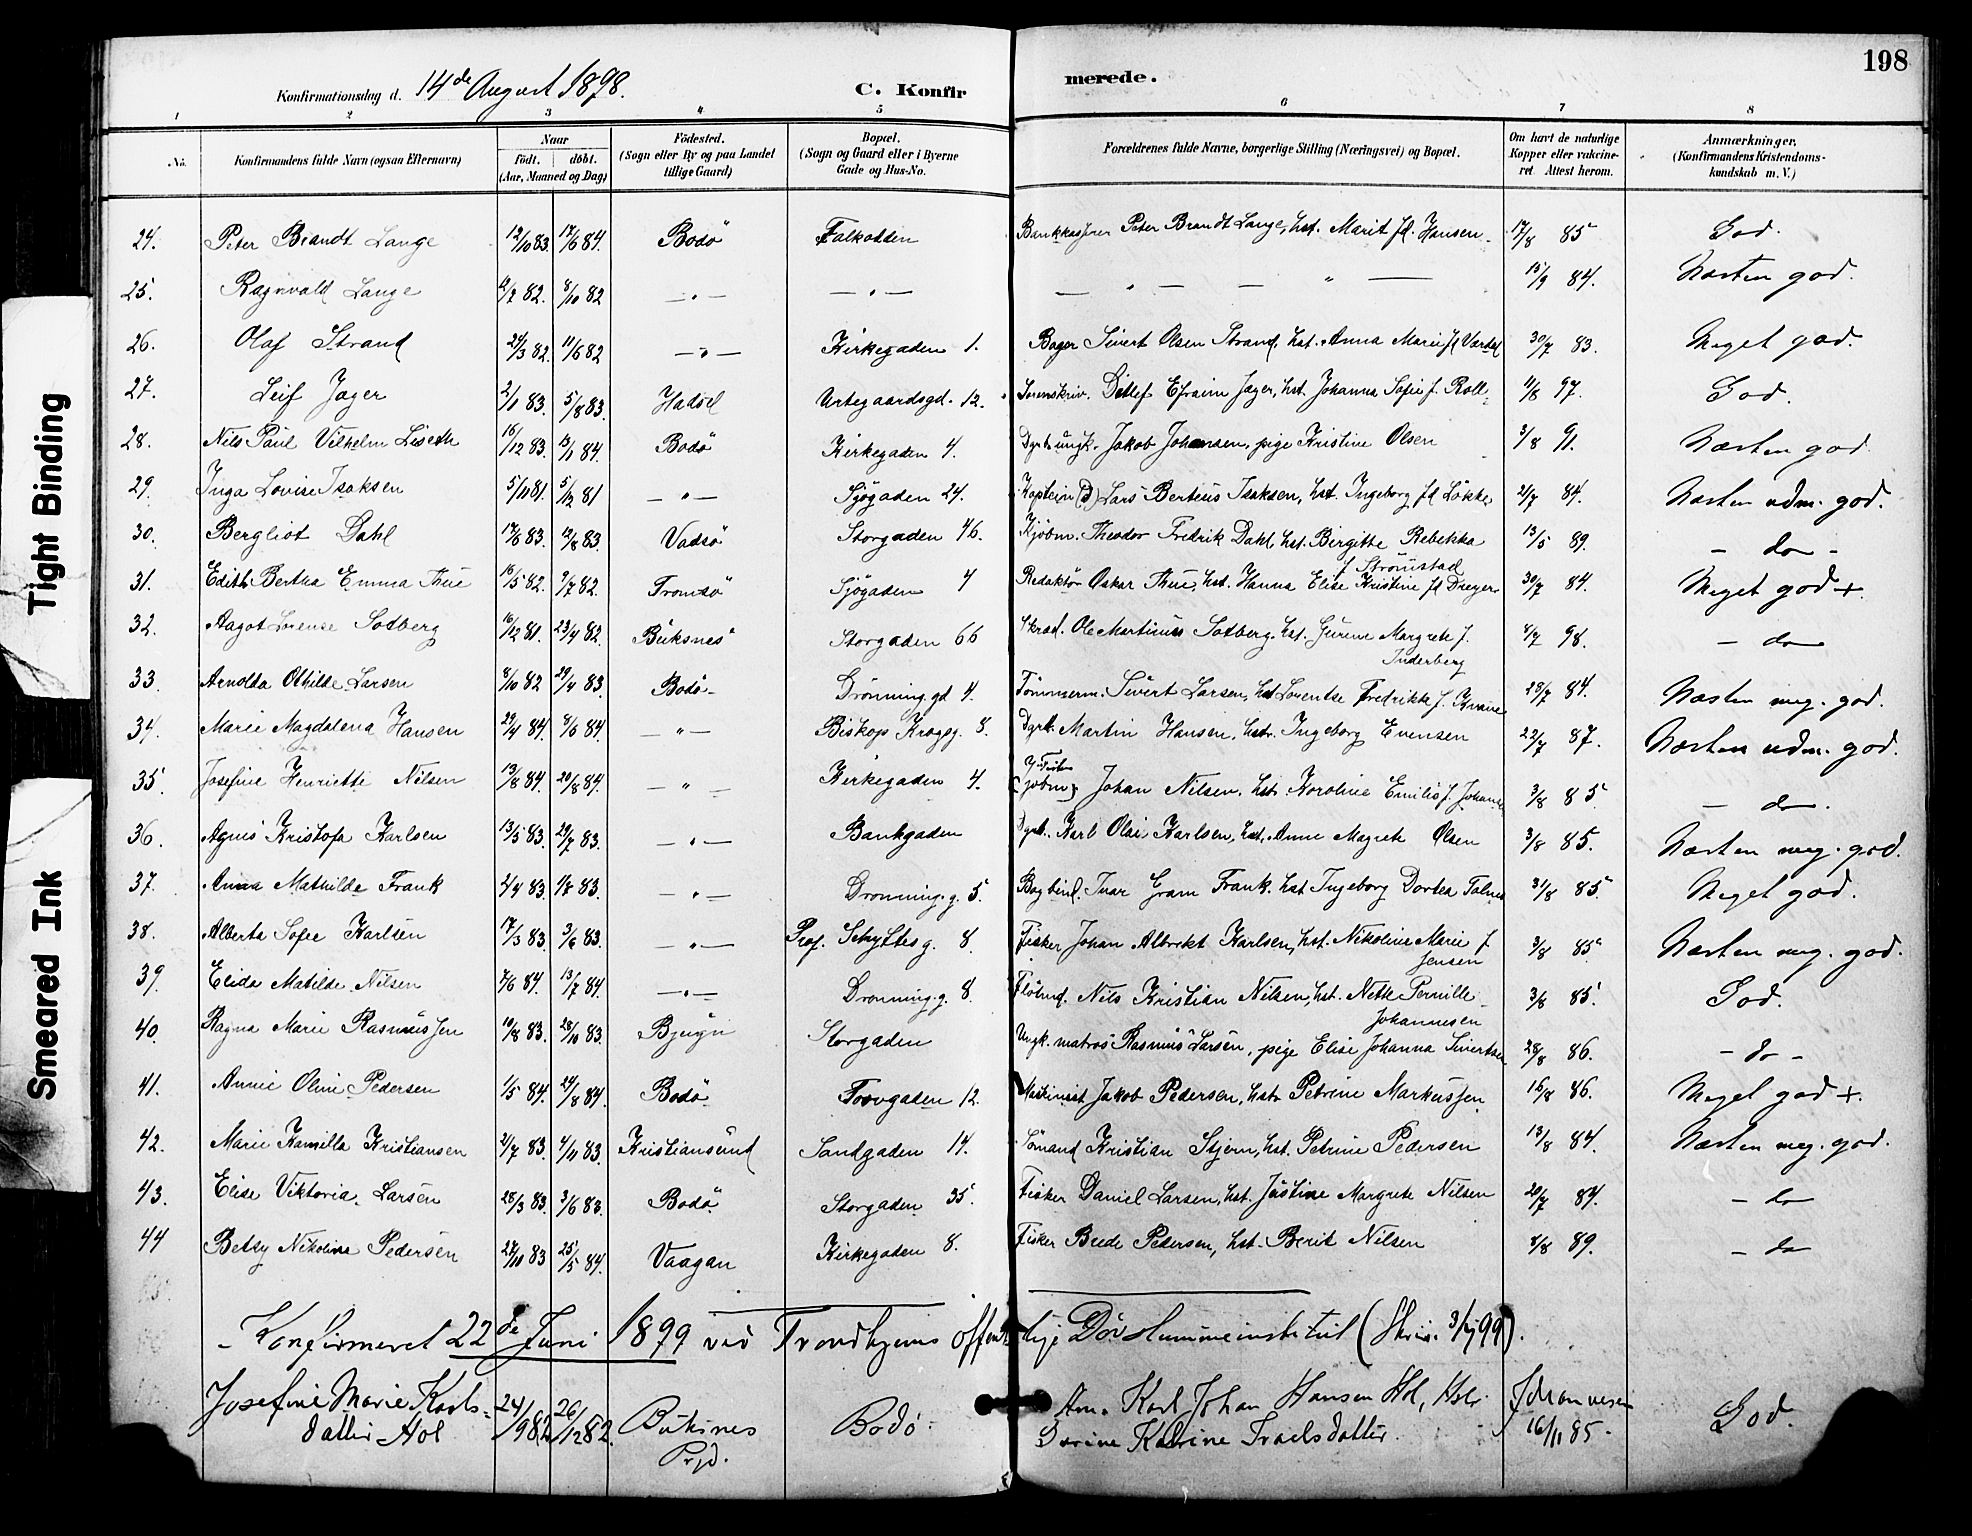 198
Konfirmationsdag d. 14de August 1898.
C. Konfirmerede.
1 2 3 4 5 6 7 8
No. Konfirmandens fulde Navn (ogsaa Efternavn) Naar födt. döbt. (Aar, Maaned og Dag) Födested. (Sogn eller By og paa Landet tillige Gaard) Bopæl. (Sogn og Gaard eller i Byerne Gade og Hus-No. Forældrenes fulde Navne, borgerlige Stilling (Næringsvei) og Bopæl. Om havt de naturlige Kopper eller vaccineret Attest herom. Anmærkninger, (Konfirmandens Kristendomskundskab m. V.)
24. Peter Brandt Lange 12/10 83. 17/6 84. Bodö Falkodden Bankkasserer Peter Brandt Lange, hst. Marit fd. Hansen 17/8 85 God.
25. Ragnvald Lange 82. 8/10 82 — " — — " — — " — — " — 15/9 84. Næsten god.
26. Olaf Strand 29/3 82. 11/6 82 — " — Kirkegaden 1. Bager Sivert Olsen Strand, hst. Anna Marie fd Værdal 30/7 83. Meget god.
27. Leif Jager 2/1 83. 5/8 83. Hadsel Urtegaardsgd. 12. Sorenskriv. Ditlef Efraim Jager, hst. Johanna Sofie f. Roll 11/8 97. God.
28. Nils Paul Vilhelm Liseth 16/12 83. 13/1 84. Bodö Kirkegaden 4. Dyrk. ungk. Jakob Johansen, pige Kristine Olsen 3/8 91. Næsten god
29. Inga Lovise Isaksen 5/11 81. 5/12 81 — " — Sjögaden 24. Kaptein (d) Lars Berteus Isaksen, hst. Ingeborg fd Lökke 21/7 84. Næsten udm. god.
30. Bergliot Dahl 17/6 83. 12/8 83. Vadsö Storgaden 46. Kjöbm. Theodor Fredrik Dahl hst. Birgitte Rebekka f Strömstad 13/5 89. — do —
31. Edith Bertha Emma Thue 16/5 82. 9/7 82. Tromsö Sjögaden 4 Redaktör Oskar Thue, hst. Hanna Elise Kristine fd Dreyer 30/7 84. Meget god +
32. Aagot Lorense Sodberg 16/12 81. 23/4 82. Buksnes Storgaden 66 Skræd. Ole Martinus Sodberg hst. Gurine Margrete f. Inderberg 98. — do
33. Arnolda Othilde Larsen 8/10 82 29/4 83. Bodö Dronning.gd 4. Tömmerm. Sivert Larsen, hst Lorentse Fredrikke f. 28/7 84. Næsten meg. god.
34. Marie Magdalena Hansen 29/4 84. 8/6 84. — " — Biskop Krogsg. 8. Dyrk. Martin Hansen, hstr. Ingeborg Evensen 22/7 87. Næsten udm. god.
35. Josefine Henriette Nilsen 13/6 84. 20/8 84. — " — Kirkegaden 4. Johan Nilsen, hstr Karoline Emilie f. 3/8 85 — do.
36. Agnes Kristofa Karlsen 13/5 83. 29/7 83. — " — Bankgaden Dyrk. Karl Olai Karlsen, hst. Anne Magrete Olsen 3/8 85. Næsten meg. god.
37. Anna Mathilde Frank 2/4 83. 1/8 83. — " — Dronning.g. 5. Bogbind. Ivar Gram Frank, hst Ingeborg Dortea 31/8 85 Meget god.
38. Alberta Sofie Karlsen 17/3 83. 3/6 83. — " — Prof. Schyttes g. 8. Fisker Johan Albrikt Karlsen, hst. Nikoline Marie f. Jensen 3/8 85 Næsten meg. god.
39. Elida Matilde Nilsen 7/6 84. 13/7 84. — " — Dronning.g. 8. Nils Kristian Nilsen, hst. Nette Pernille Johannesen 3/8 85 God.
40. Ragna Marie Rasmussen 19/8 83. 28/10 83. Bjugn Storgaden Ungk. matros Rasmus Larsen, pige Elise Johanna Sivertsen 28/8 86. — do —
41. Annie Oline Pedersen 1/5 84. 24/8 84. Bodö Torvgaden 12. Maskinist Jakob Pedersen, hstr Petrine Markussen 16/8 86. Meget god +.
42. Marie Kamilla Kristiansen 2/7 83. 4/11 83. Kristiansund Sandgaden 14. Sömand Kristian Stjern, hst. Petrine Pedersen 13/8 84. Næsten meg. god.
43. Elise Viktoria Larsen 28/3 83. 3/6 83. Bodö Storgaden 35. Fisker Daniel Larsen, hst. Justine Margrete Nilsen 20/7 84. — do
44 Betsy Nikoline Pedersen 27/10 83 25/5 84. Vaagan Kirkegaden 8. Fisker Brede Pedersen, hst. Berit Nilsen 8/8 89. — do
Konfirmeret 22de Juni 1899 ved Trondhjems offentlige Døvstummeinstitut (Skriv. 3/7 99).
Josefine Marie Karlsdatter Hol 24/9 82 26/12 82. Buksnes Prgd. Bodö Arb. Karl Johan Hansen Hol, Hstr. Dorine Katrine Traelsdatter 16/11 85. God.
Tight Binding
Smeared Ink